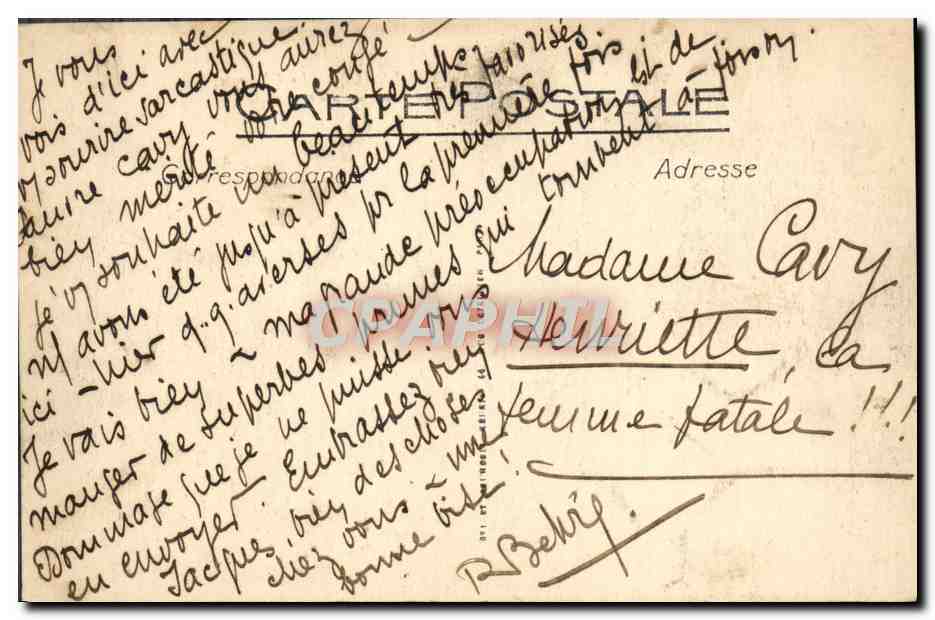 CARTE POSTALE
Correspondance
Adresse
Je vous
vois d'ici avec
v/ sourire sarcastique
faire Cavy vous aurez
bien mérité votre congé
je v/ souhaite un beau temps
n/ avons été jusqu'à présent très favorisés
ici - hier d.. q. averses pr la première fois
Je vais bien - ma grande préoccupation est de
manger de superbes prunes qui tombent à foison.
Dommage que je ne puisse vous
en envoyer. Embrassez bien
Jacques, bien des choses
chez vous - une
bonne bise !
R Betrix.
Madame Cavy
Henriette, la
femme fatale !!!
CPAPHIL